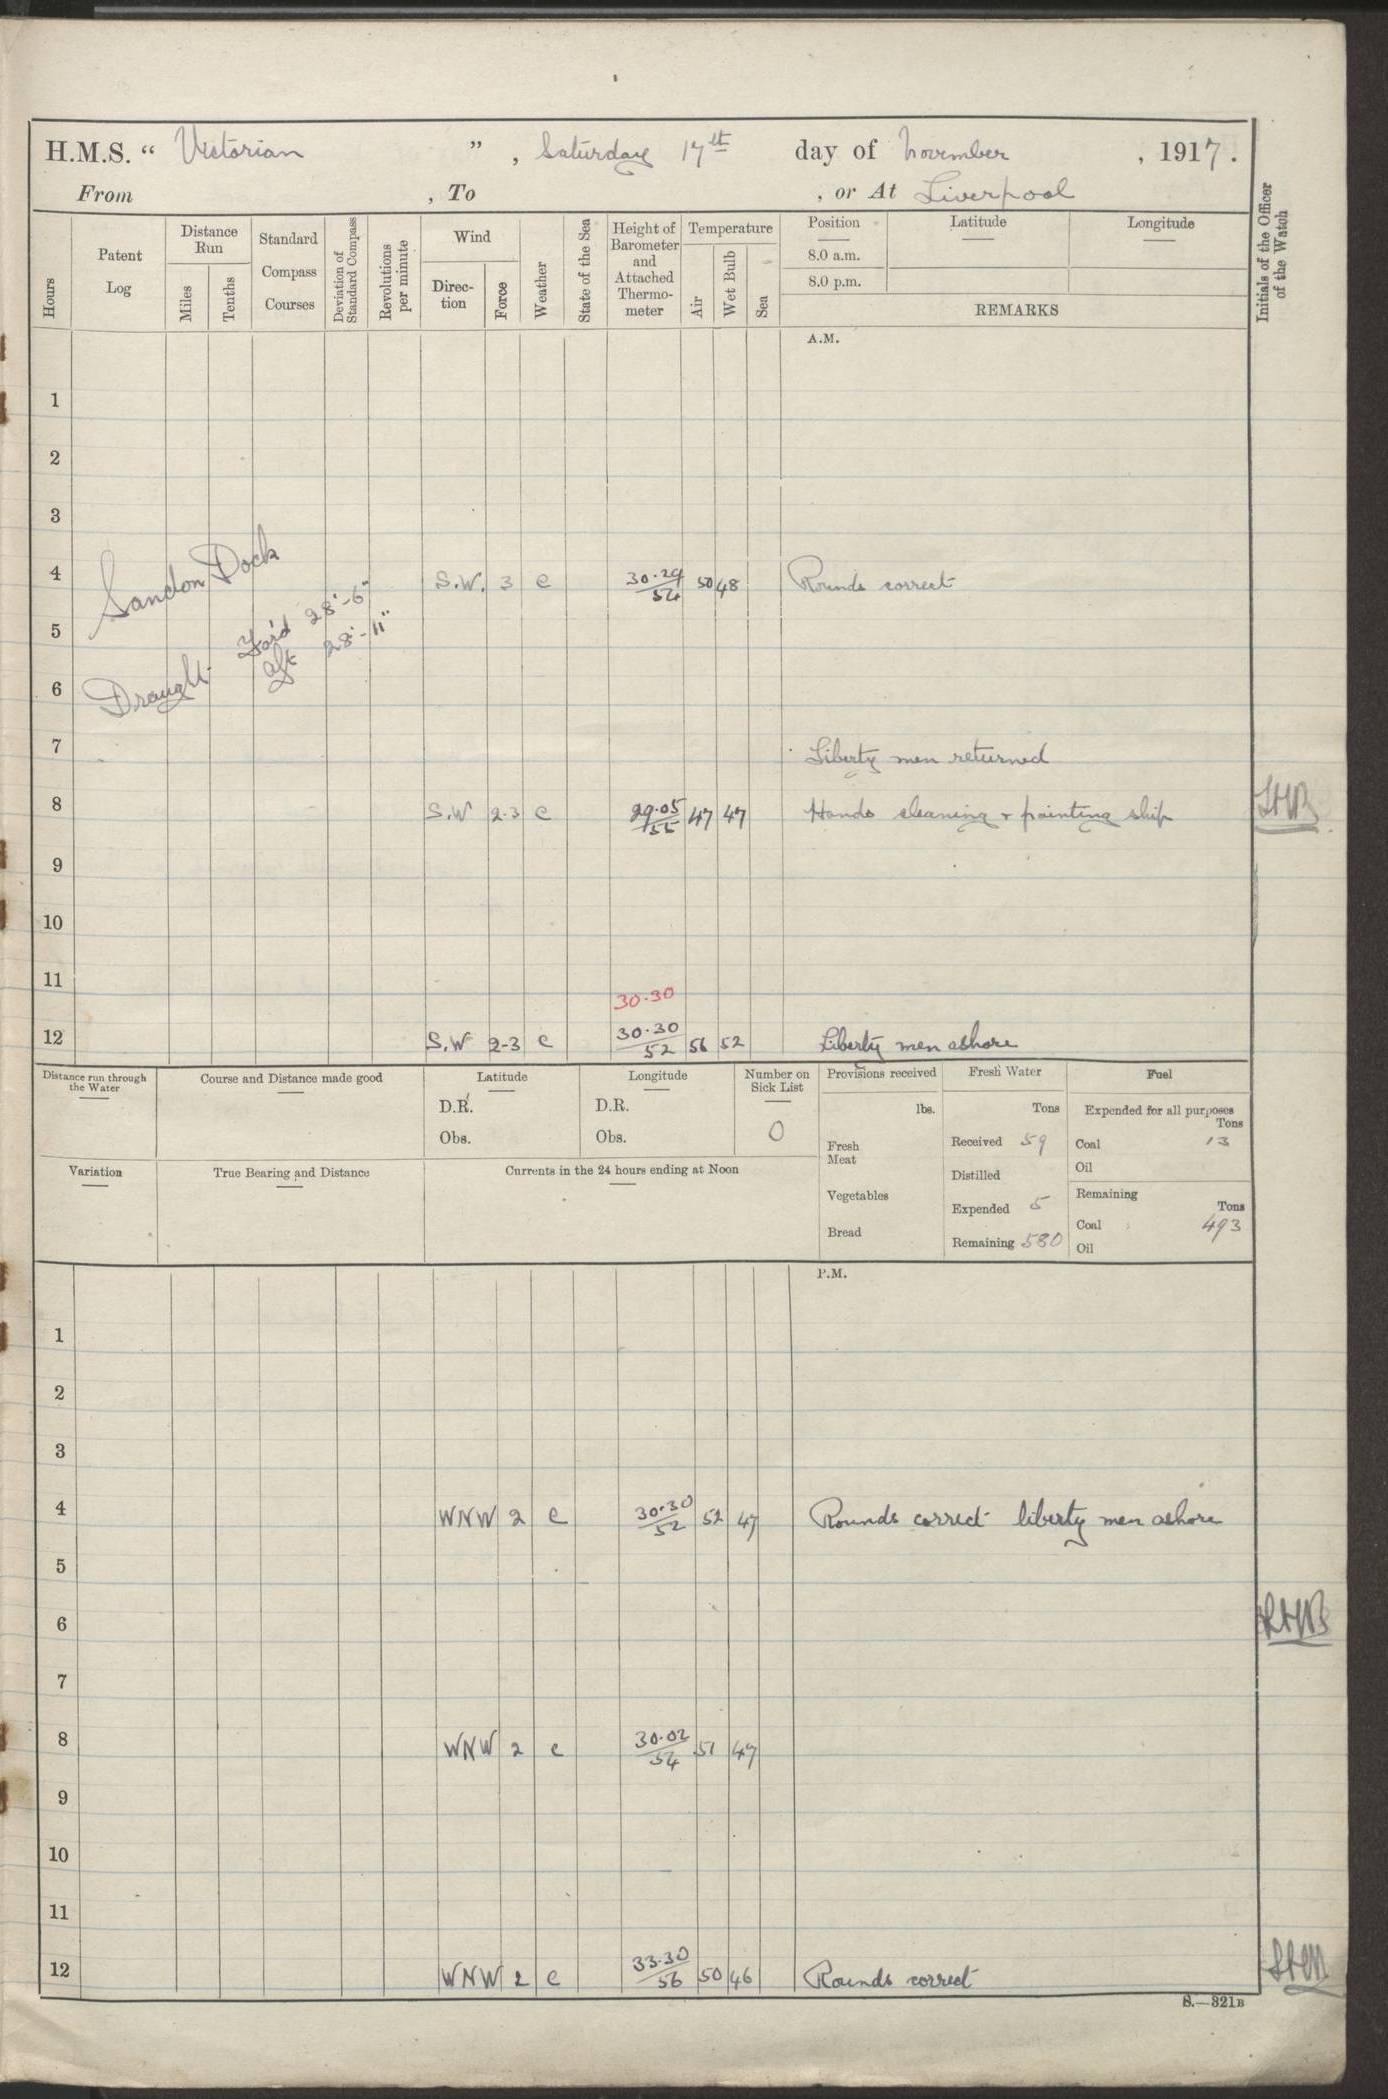 H.M.S. “ Victorian ” , Saturday 17th day of November , 1917.
From , To , or At Liverpool
Hours
Patent Log
Distance Run
Miles
Tenths
Standard Compass Courses
Deviation of Standard Compass
Revolutions per minute
Wind
Direc-tion
Force
Weather
State of the Sea
Height of Barometer and Attached Thermo-meter
Temperature
Air
Wet Bulb
Sea
Position
8.0 a.m.
8.0 p.m.
Latitude
Longitude
REMARKS
Initials of the Officer of the Watch
A.M.
1
2
3
Sandon Dock
4 S.W. 3 c 30.29/54 50 48 Rounds correct
5
Draught For'd 28'-6"
Aft 28'-11"
6
7 Liberty men returned
8 S.W 2-3 c 29.05/55 47 47 Hands cleaning & painting ship
9
10
11
30.30
12 S.W 2-3 c 30.30/52 56 52 Liberty men ashore
Distance run through the Water
Course and Distance made good
Latitude
D.R.
Obs.
Longitude
D.R.
Obs.
Number on Sick List
0
Provisions received
lbs.
Fresh Meat
Vegetables
Bread
Fresh Water
Tons
Received 59
Distilled
Expended 5
Remaining 580
Fuel
Expended for all purposes
Tons
Coal 13
Oil
Remaining
Tons
Coal 493
Oil
Variation
True Bearing and Distance
Currents in the 24 hours ending at Noon
P.M.
1
2
3
4 WNW 2 c 30.30/52 52 47 Rounds correct liberty men ashore
5
6
7
8 WNW 2 c 30.02/54 51 47
9
10
11
12 WNW 2 c 33.30/56 50 46 Rounds correct
S.—321B